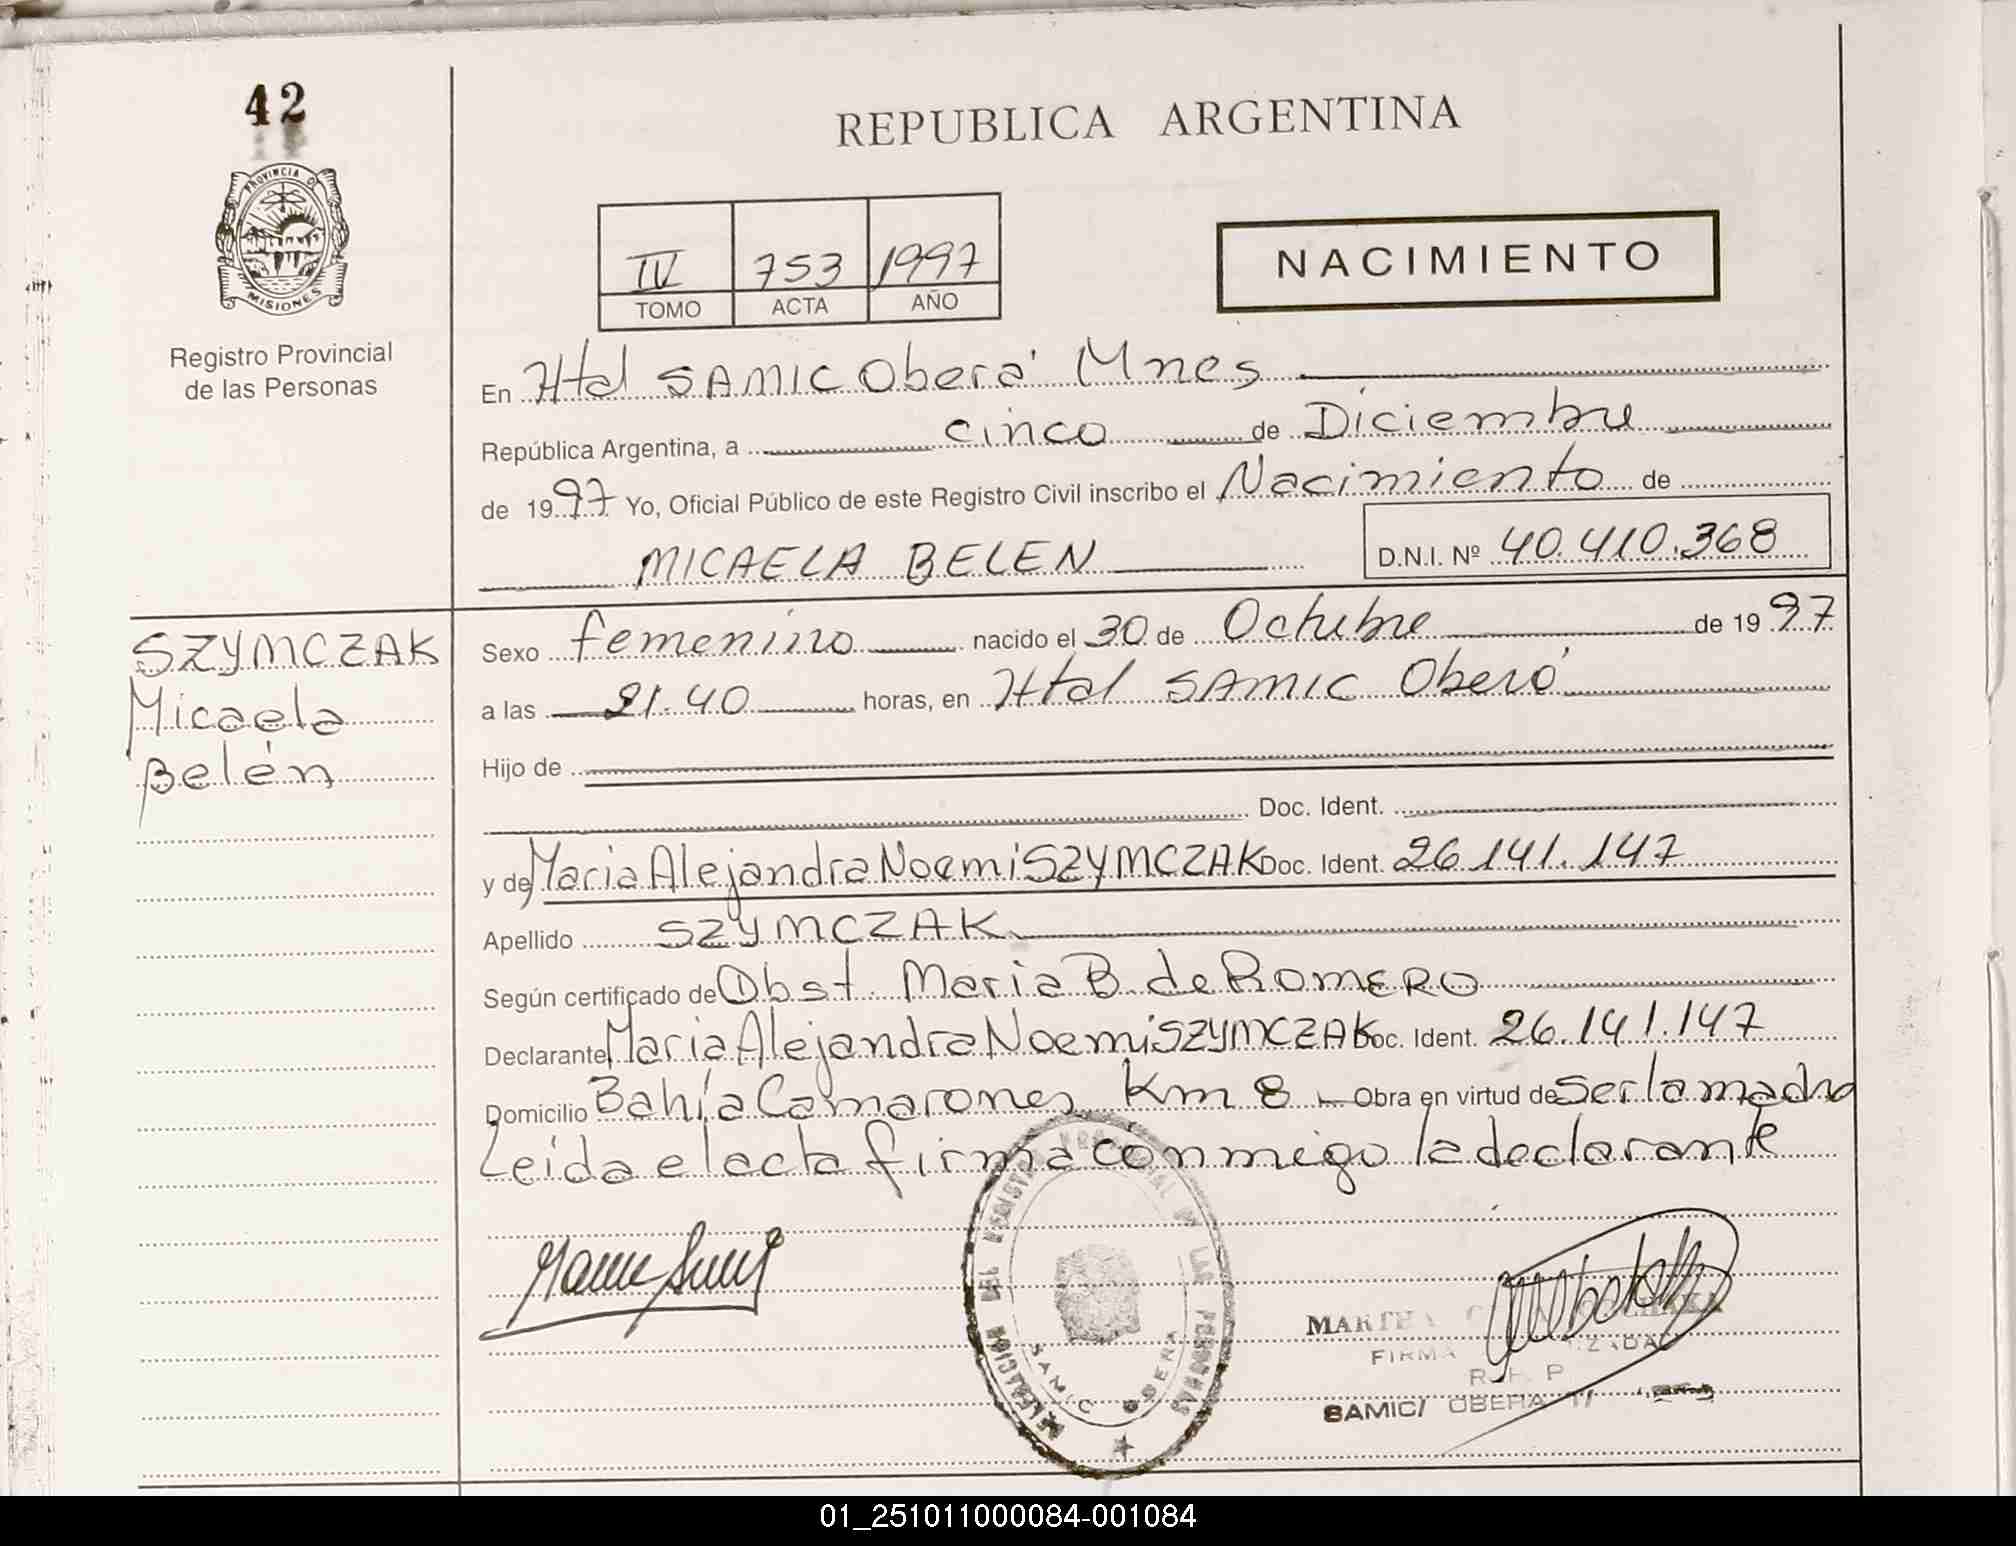 42
REPUBLICA ARGENTINA
PROVINCIA D
MISIONES
Registro Provincial
de las Personas
IV 753 1997
TOMO ACTA AÑO
NACIMIENTO
En Htal SAMIC Oberá Mnes
República Argentina, a cinco de Diciembre
de 1997 Yo, Oficial Público de este Registro Civil inscribo el Nacimiento de
MICAELA BELEN D.N.I. Nº 40.410.368
SZYMCZAK
Micaela
Belén
Sexo femenino nacido el 30 de Octubre de 1997
a las 21.40 horas, en Htal SAMIC Oberá
Hijo de
Doc. Ident.
y de Maria Alejandra Noemi SZYMCZAK Doc. Ident. 26.141.147
Apellido SZYMCZAK
Según certificado de Obst. Maria B. de ROMERO
Declarante Maria Alejandra Noemi SZYMCZAK Doc. Ident. 26.141.147
Domicilio Bahía Camarones Km 8 Obra en virtud de ser la madre
Leida el acta firma conmigo la declarante
DELEGACION DEL REGISTRO PROVINCIAL DE LAS PERSONAS
SAMIC OBERA
MARTHA
FIRMA
R. P. P
SAMIC/ OBERA
01_251011000084-001084